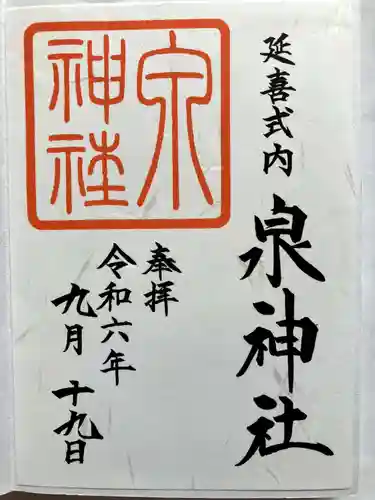 延喜式内
泉神社
奉拝
令和六年
九月十九日
泉
神社